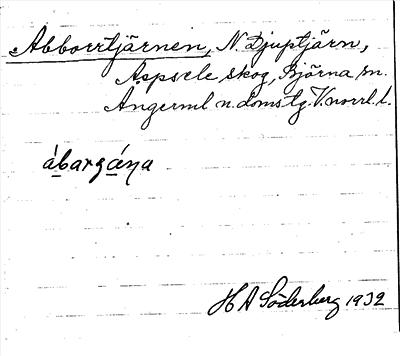 Abborrtjärnen, N. Djuptjärn,
Aspsele skog, Björna sn.
Ångerml n. domstg. V. norrl. l.
ábargáṇa
H A Söderberg 1932